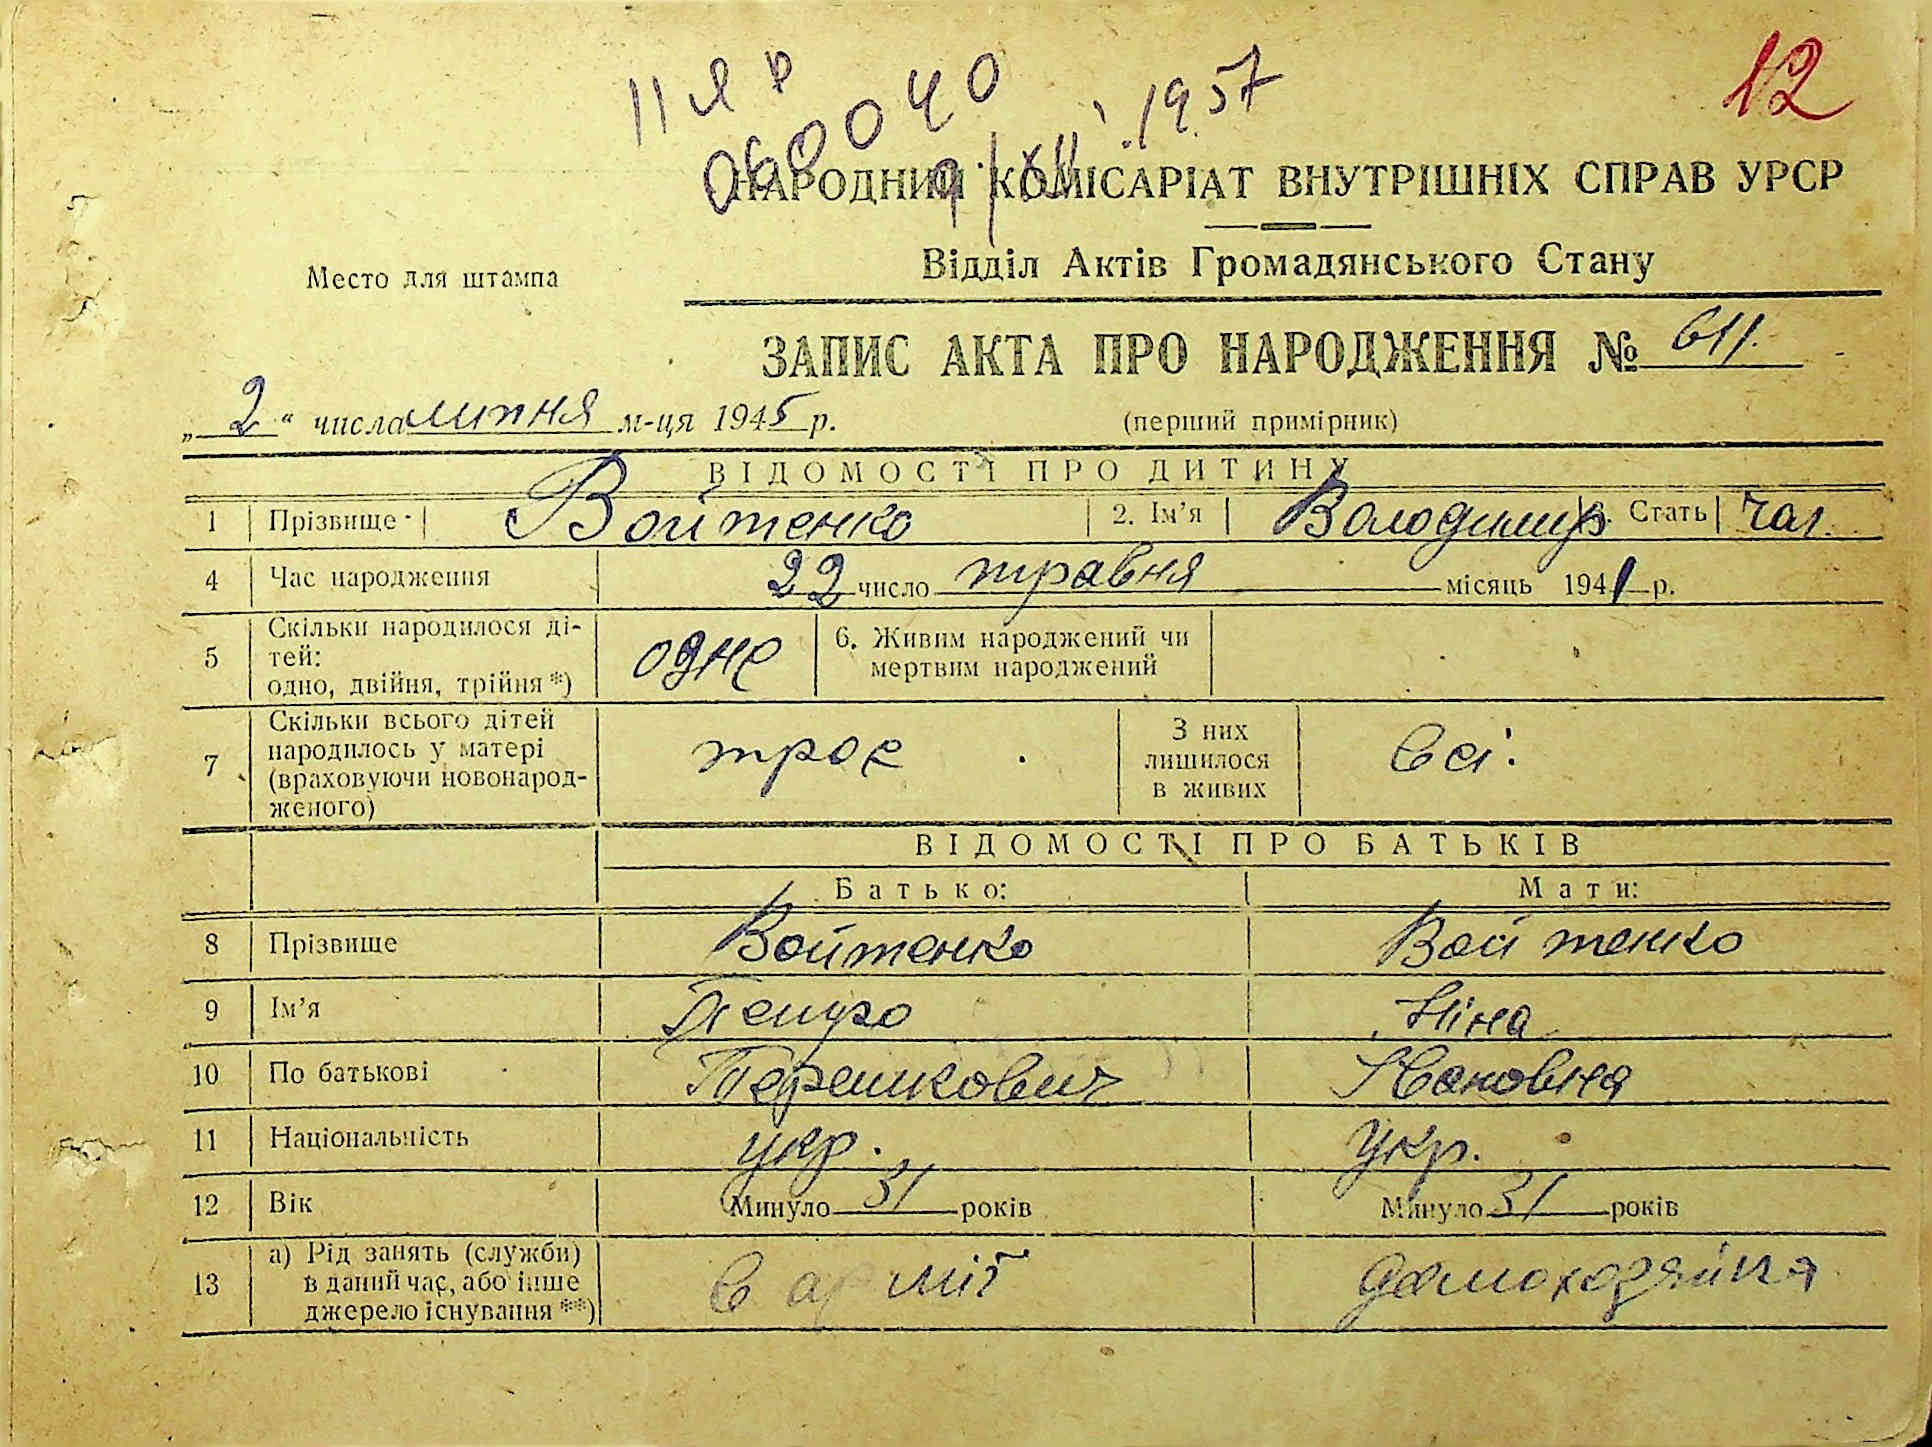 II ЯР
060040
9/XII 1957
12
НАРОДНИЙ КОМІСАРІАТ ВНУТРІШНІХ СПРАВ УРСР
Відділ Актів Громадянського Стану
Место для штампа
ЗАПИС АКТА ПРО НАРОДЖЕННЯ № 611.
„2“ числа липня м-ця 1945 р. (перший примірник)
ВІДОМОСТІ ПРО ДИТИНУ
1 Прізвище Войтенко 2. Ім’я Володимир 3. Стать чол.
4 Час народження 22 число травня місяць 1941 р.
5 Скільки народилося ді-
тей:
одно, двійня, трійня*) одне 6. Живим народжений чи
мертвим народжений
7 Скільки всього дітей
народилось у матері
(враховуючи новонарод-
женого) троє З них
лишилося
в живих всі.
ВІДОМОСТІ ПРО БАТЬКІВ
Батько: Мати:
8 Прізвище Войтенко Войтенко
9 Ім’я Петро Ніна
10 По батькові Терешкович Івановна
11 Національність укр. Укр.
12 Вік Минуло 31 років Минуло 31 років
13 а) Рід занять (служби)
в даний час, або інше
джерело існування**) в армії домохозяйка